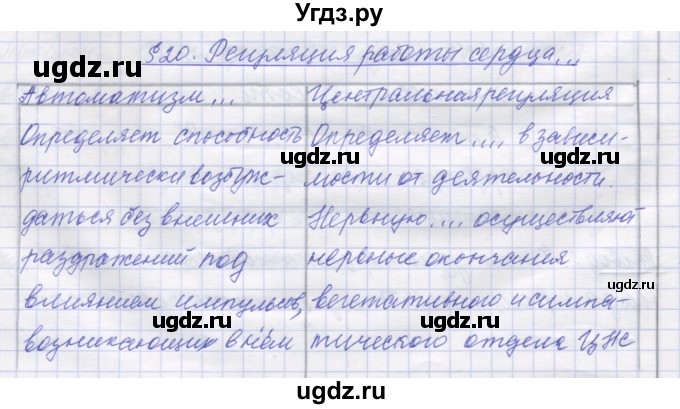 Угдз.ру
§20. Регуляция работы сердца...
Автоматизм... Центральная регуляция
Определяет способность Определяет .... в зависи-
ритмически возбуж- мости от деятельности.
даться без внешних Нервную .... осуществляют
раздражений под нервные окончания
влиянием импульсов, вегетативного и симпа-
возникающих в нём тического отдела ЦНС
ugdz.ru
ugdz.ru
ugdz.ru
ugdz.ru
ugdz.ru
ugdz.ru
ugdz.ru
ugdz.ru